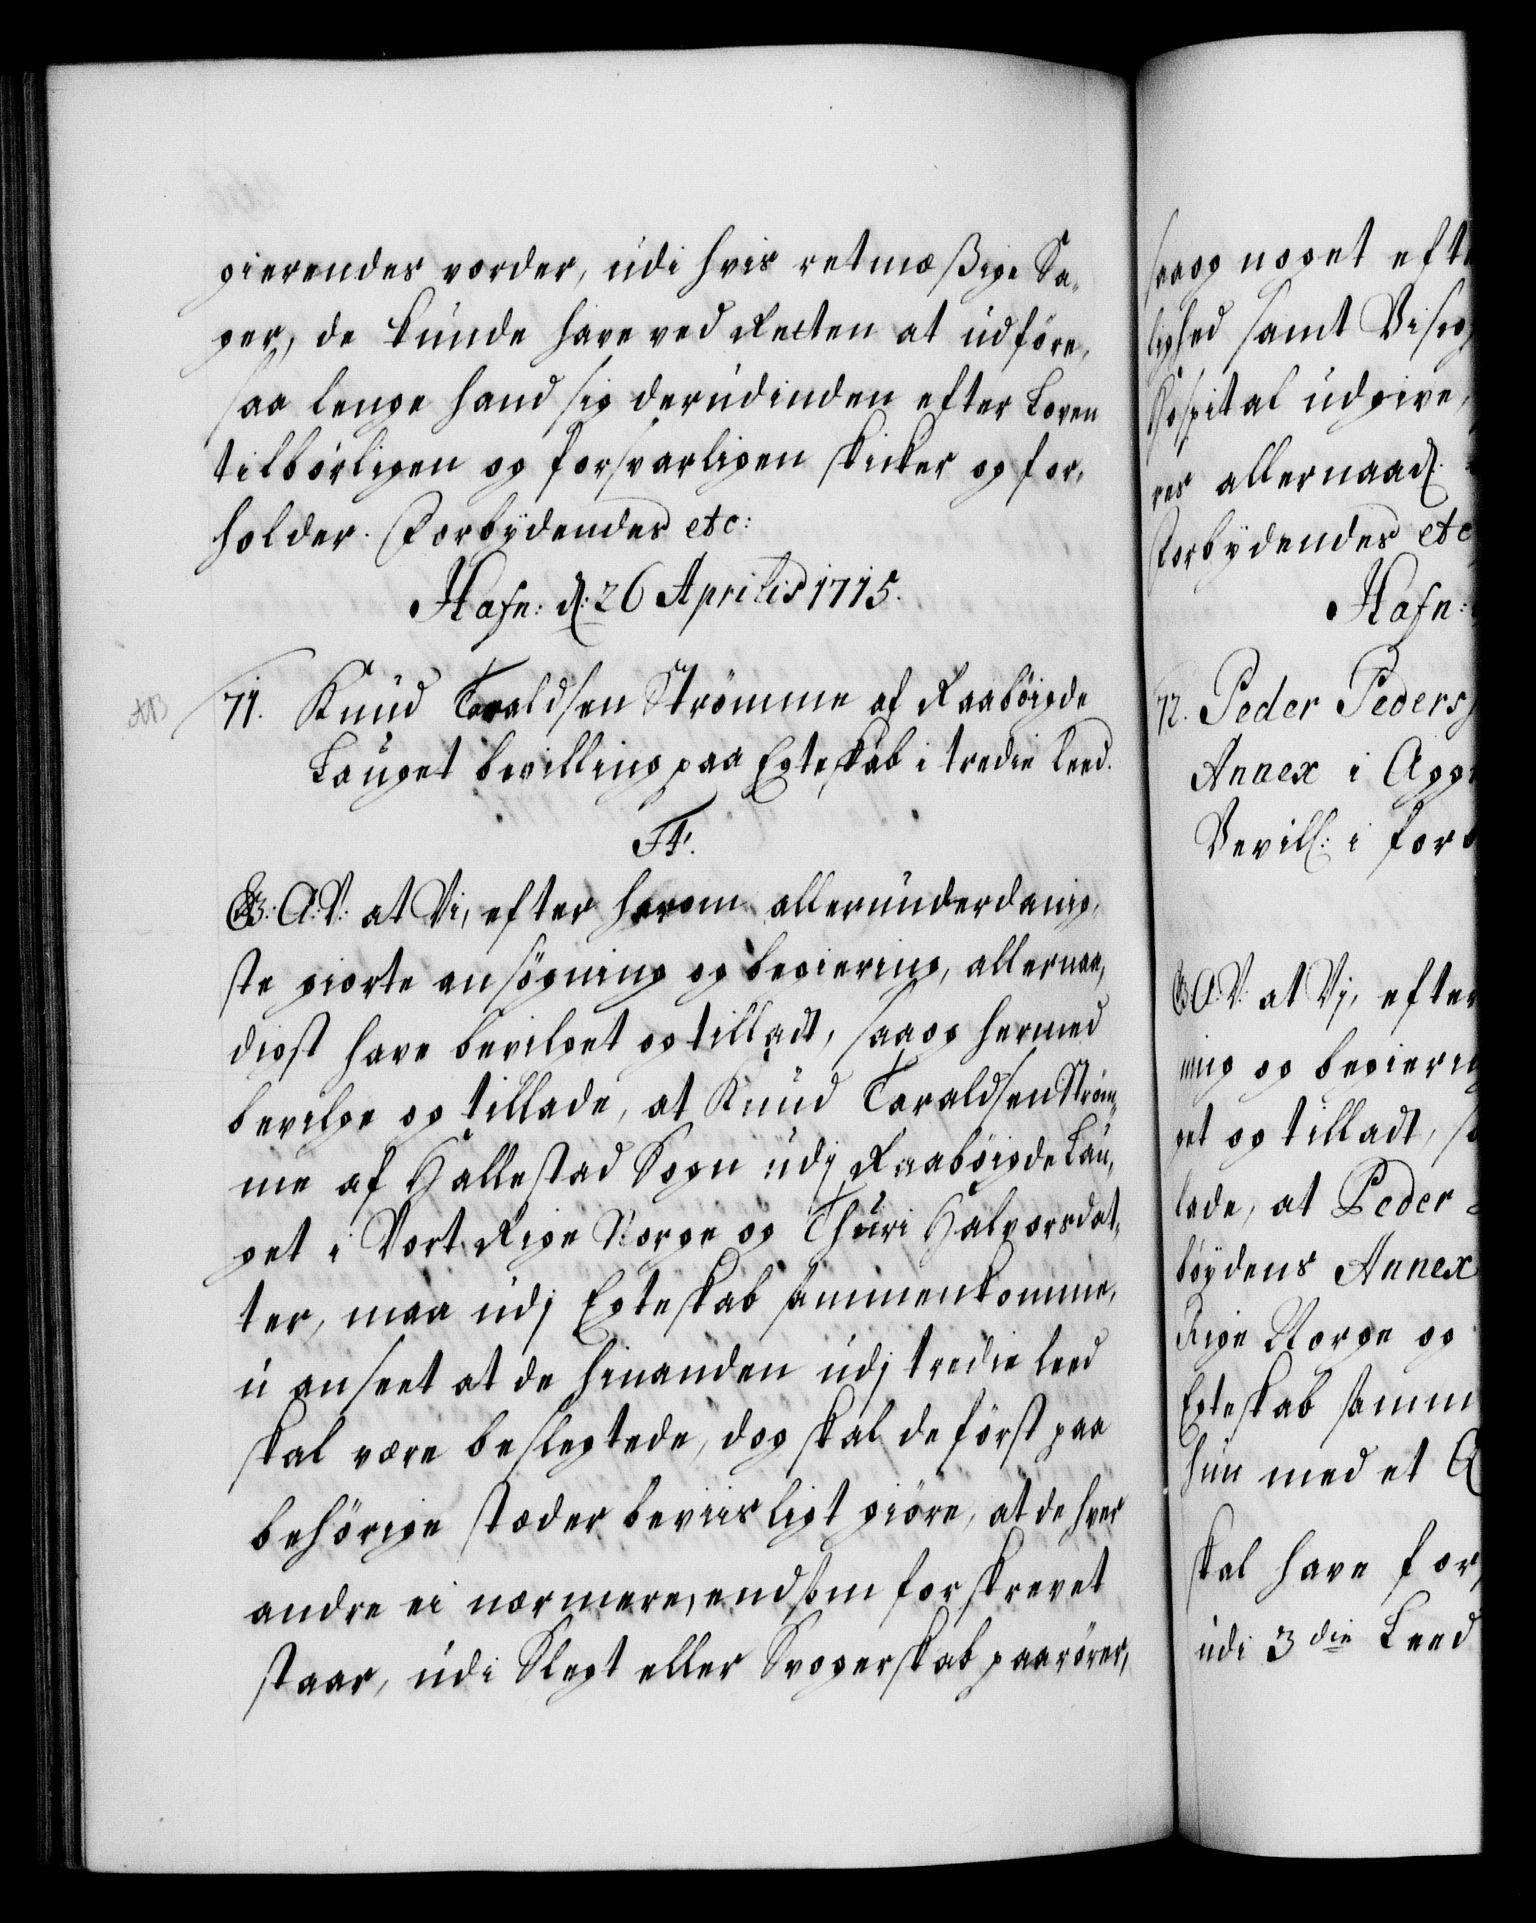 gierendes vorder, udi hvis retmæßige Sa-
ger, de kunde have ved Retten at udföre,
saa lenge hand sig derudinden efter Loven
tilbörligen og forsvarligen skicker og for-
holder. Forbydendes etc:
Hafn: d: 26 Aprilis 1715.
71. Knud Taraldsen Strömme af Raaböigde
Lauget bevilling paa Egteskab i tredie leed.
F4.
G: A: V: at Vi, efter herom allerunderdanig-
ste giorte ansögning og begiering, allernaa-
digst have bevilget og tilladt, saa og hermed
bevilge og tillade, at Knud Taraldsen Ström-
me af Hallestad Sogn udj Raaböigde Lau-
get i Vort Rige Norge og Thuri Halvorsdat-
ter, maa udj Egteskab sammenkomme,
u anseet at de hinanden udj tredie leed
skal være beslegtede, dog skal de först paa
behörige stæder beviisligt giöre, at de hver
andre ei nærmere, end som forskrevet
staar, udi Slegt eller Svogerskab paarörer,
saa og noget eft
lighed samt Vise
Hospital udgive,
res allernaad:
Forbydendes etc
Hafn:
72. Peder Peders
Annex i Agge
Bevill: i forb
G A: V: at Vj, efter
ning og begiering
get og tilladt, sa
lade, at Peder
böydens Annex
Rige Norge og
Egteskab samm
hun med et A
skal have for
udi 3die Leed